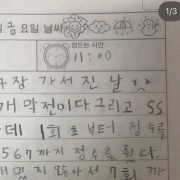 1/3
금 요일 날씨
잠드는 시간
11:00
구장 가서 진 날
개막전이다 그리고 SS
데 1회 초부터 점수를
567까지 점수를 줬다.
7회 까